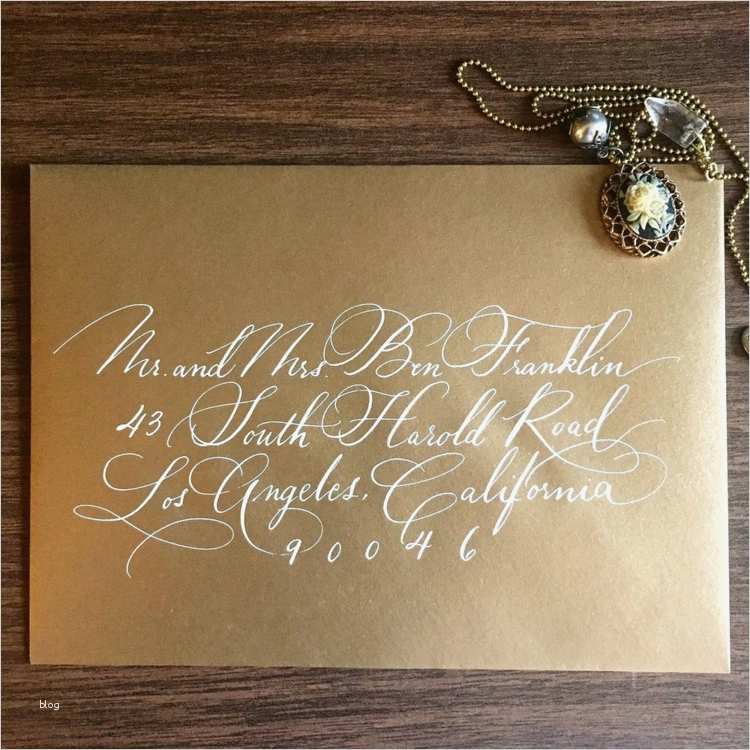 Mr. and Mrs. Ben Franklin
43 South Harold Road
Los Angeles, California
90046
blog